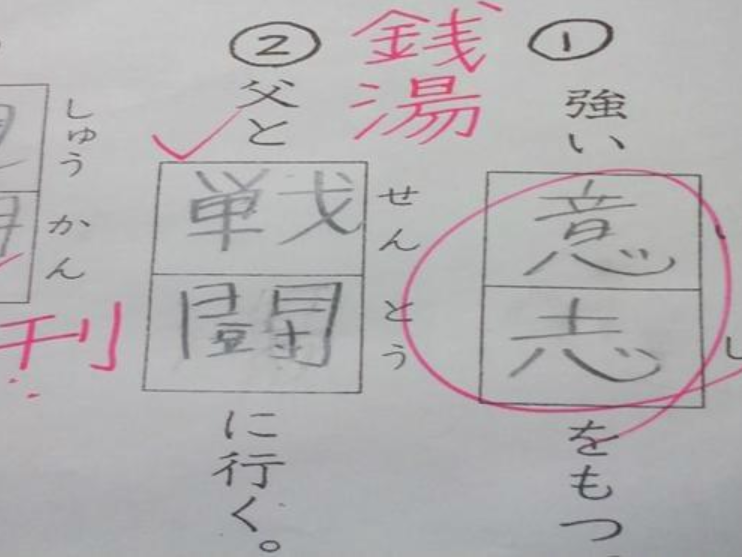 ①
強い意志をもつ
し
②
父と戦闘に行く。
せんとう
銭湯
しゅうかん
刊